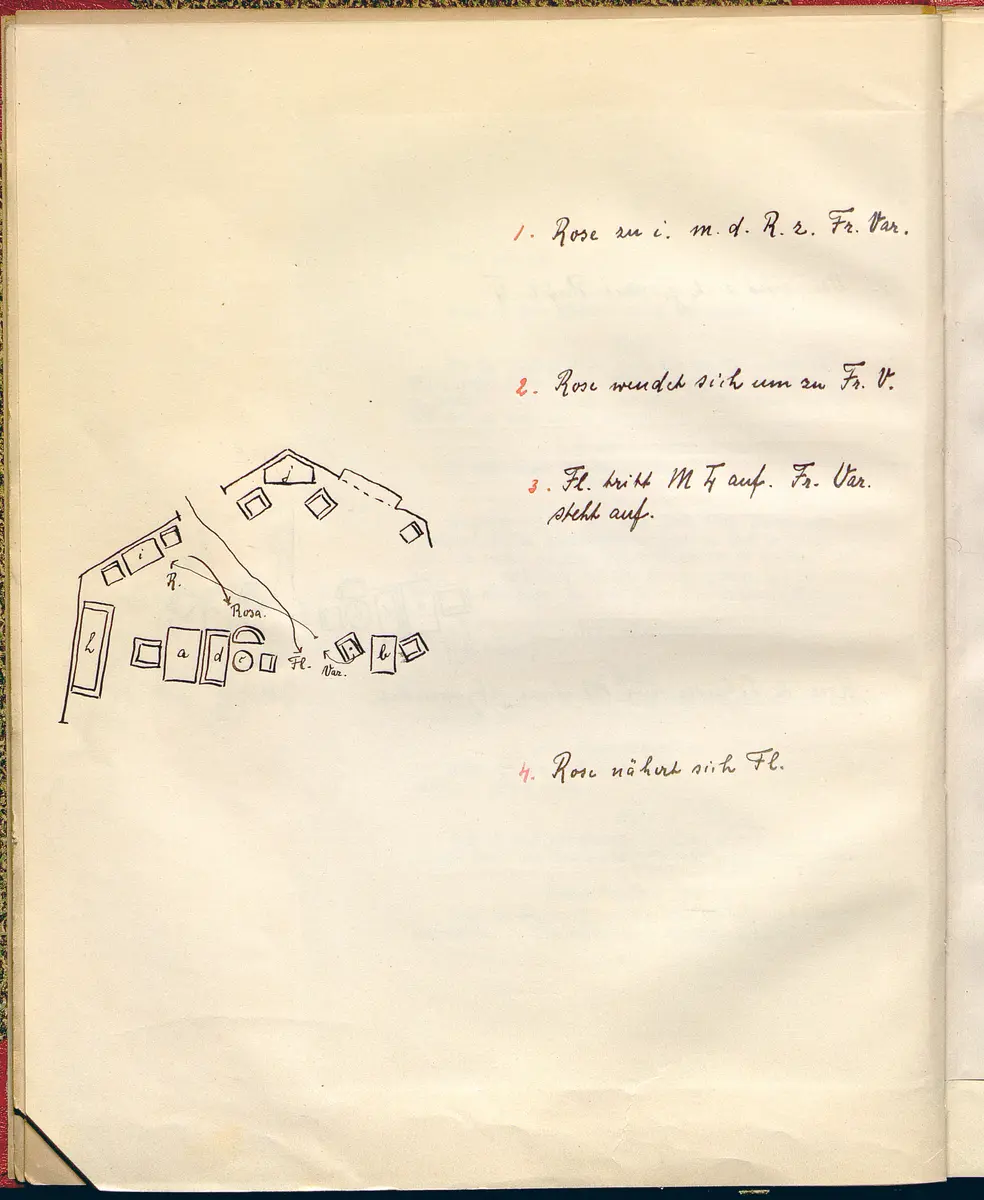 1. Rose zu i. m. d. R. z. Fr. Var.
2. Rose wendet sich um zu Fr. V.
3. Fl. tritt M auf. Fr. Var.
steht auf.
j
i
R.
Rosa.
h
a
d
c
Fl.
Var.
b
4. Rose nähert sich Fl.